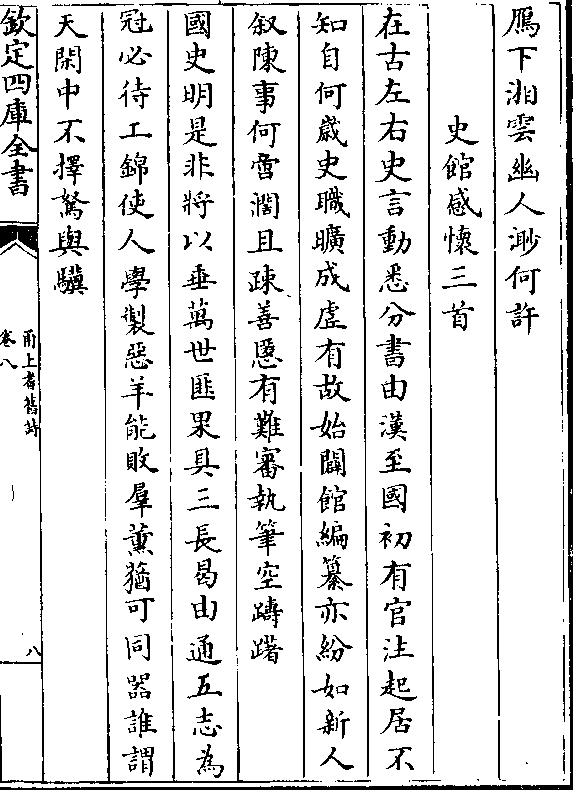 鴈下湘雲幽人渺何許
史館感懷三首
在古左右史言動悉分書由漢至國初有官注起居不
知自何歲史職曠成虛有故始闢館編纂亦紛如新人
叙陳事何啻濶且疎善慝有難審執筆空躊躇
國史明是非將以垂萬世匪果具三長曷由通五志為
冠必待工錦使人學製惡羊能敗羣薰猶可同器誰謂
天閑中不擇駑與驥
欽定四庫全書
甬上耆舊詩
卷八
八